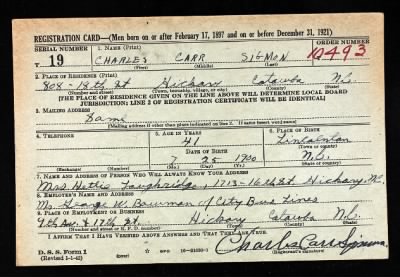 REGISTRATION CARD—(Men born on or after February 17, 1897 and on or before December 31, 1921)
SERIAL NUMBER 1. NAME (Print) ORDER NUMBER
T 19 CHARLES CARR SIGMON 10493
(First) (Middle) (Last)
2. PLACE OF RESIDENCE (Print)
808 - 18th St Hickory Catawba N.C.
(Number and street) (Town, township, village, or city) (County) (State)
[THE PLACE OF RESIDENCE GIVEN ON THE LINE ABOVE WILL DETERMINE LOCAL BOARD
JURISDICTION; LINE 2 OF REGISTRATION CERTIFICATE WILL BE IDENTICAL]
3. MAILING ADDRESS
Same
[Mailing address if other than place indicated on line 2. If same insert word same]
4. TELEPHONE 5. AGE IN YEARS 6. PLACE OF BIRTH
41 Lincolnton
DATE OF BIRTH (Town or county)
7 25 1900 N.C.
(Exchange) (Number) (Mo.) (Day) (Yr.) (State or country)
7. NAME AND ADDRESS OF PERSON WHO WILL ALWAYS KNOW YOUR ADDRESS
Mrs. Hettie Loughridge, 1713-16th St Hickory N.C.
8. EMPLOYER'S NAME AND ADDRESS
Mr. George W. Bowman c/o City Bus Lines
9. PLACE OF EMPLOYMENT OR BUSINESS
9th Ave & 17th St Hickory Catawba N.C.
(Number and street or R. F. D. number) (Town) (County) (State)
I AFFIRM THAT I HAVE VERIFIED ABOVE ANSWERS AND THAT THEY ARE TRUE.
D. S. S. Form 1
(Revised 1-1-42) (over) Charles Carr Sigmon
(Registrant's signature)